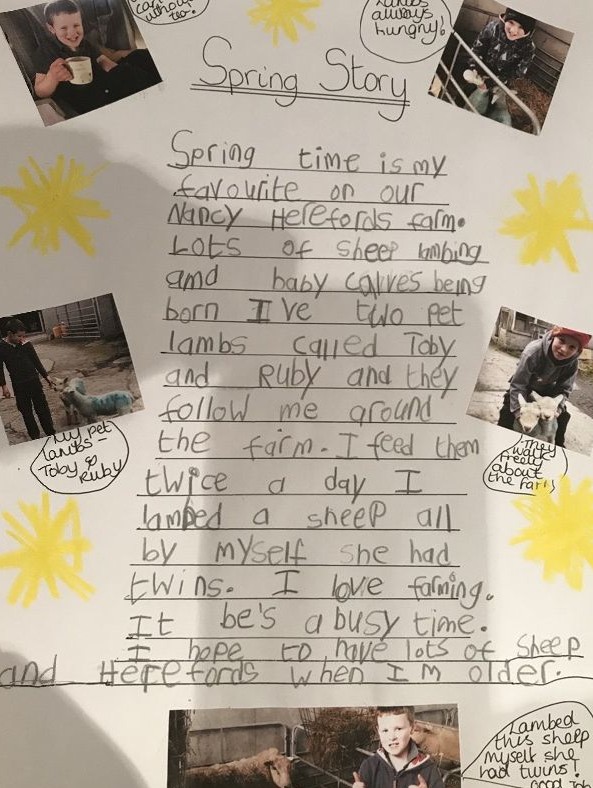 without
tea!
Lambs
always
hungry!
Spring Story
Spring time is my
favourite on our
Nancy Herefords farm.
Lots of sheep lambing
and baby calves being
born I've two pet
lambs called Toby
and Ruby and they
follow me around
the farm. I feed them
twice a day I
lambed a sheep all
by myself she had
twins. I love farming.
It be's a busy time.
I hope to have lots of sheep
and Herefords when I'm older.
My pet
lambs -
Toby &
Ruby
They
walk
freely
about
the farm
Lambed
this sheep
myself she
had twins!
Good Job